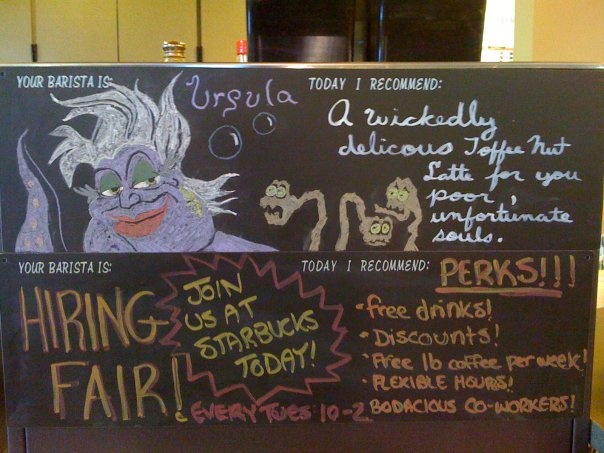 YOUR BARISTA IS:
Ursula
TODAY I RECOMMEND:
A wickedly
delicous Toffee Nut
Latte for you
poor,
unfortunate
souls.
YOUR BARISTA IS:
HIRING
FAIR!
JOIN
US AT
STARBUCKS
TODAY!
EVERY TUES 10-2
TODAY I RECOMMEND:
PERKS!!!
• free drinks!
• Discounts!
• Free lb coffee per week!
• FLEXIBLE HOURS!
BODACIOUS CO-WORKERS!